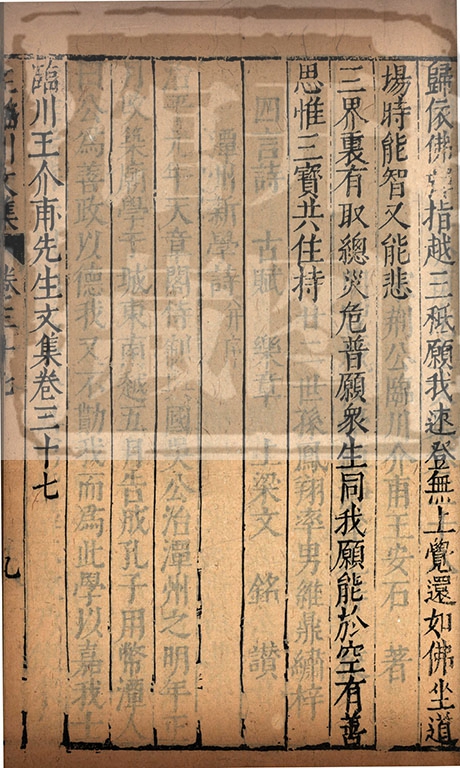 歸依佛彈指越三秖願我速登無上覺還如佛坐道
場時能智又能悲
荆公臨川介甫王安石 著
三界裏有取總災危普願衆生同我願能於空有善
思惟三寶共住持
廿二世孫鳳翔率男維鼎繡梓
四言詩 古賦 樂章 上梁文 銘 讚
潭州新學詩并序
治平元年天章閣待制興國吳公治潭州之明年正
月改築廟學于城東南越五月告成孔子用幣潭人
曰公為善政以德我又不勸我而為此學以嘉我士
臨川王介甫先生文集卷三十七
王臨川文集 卷三十七 九